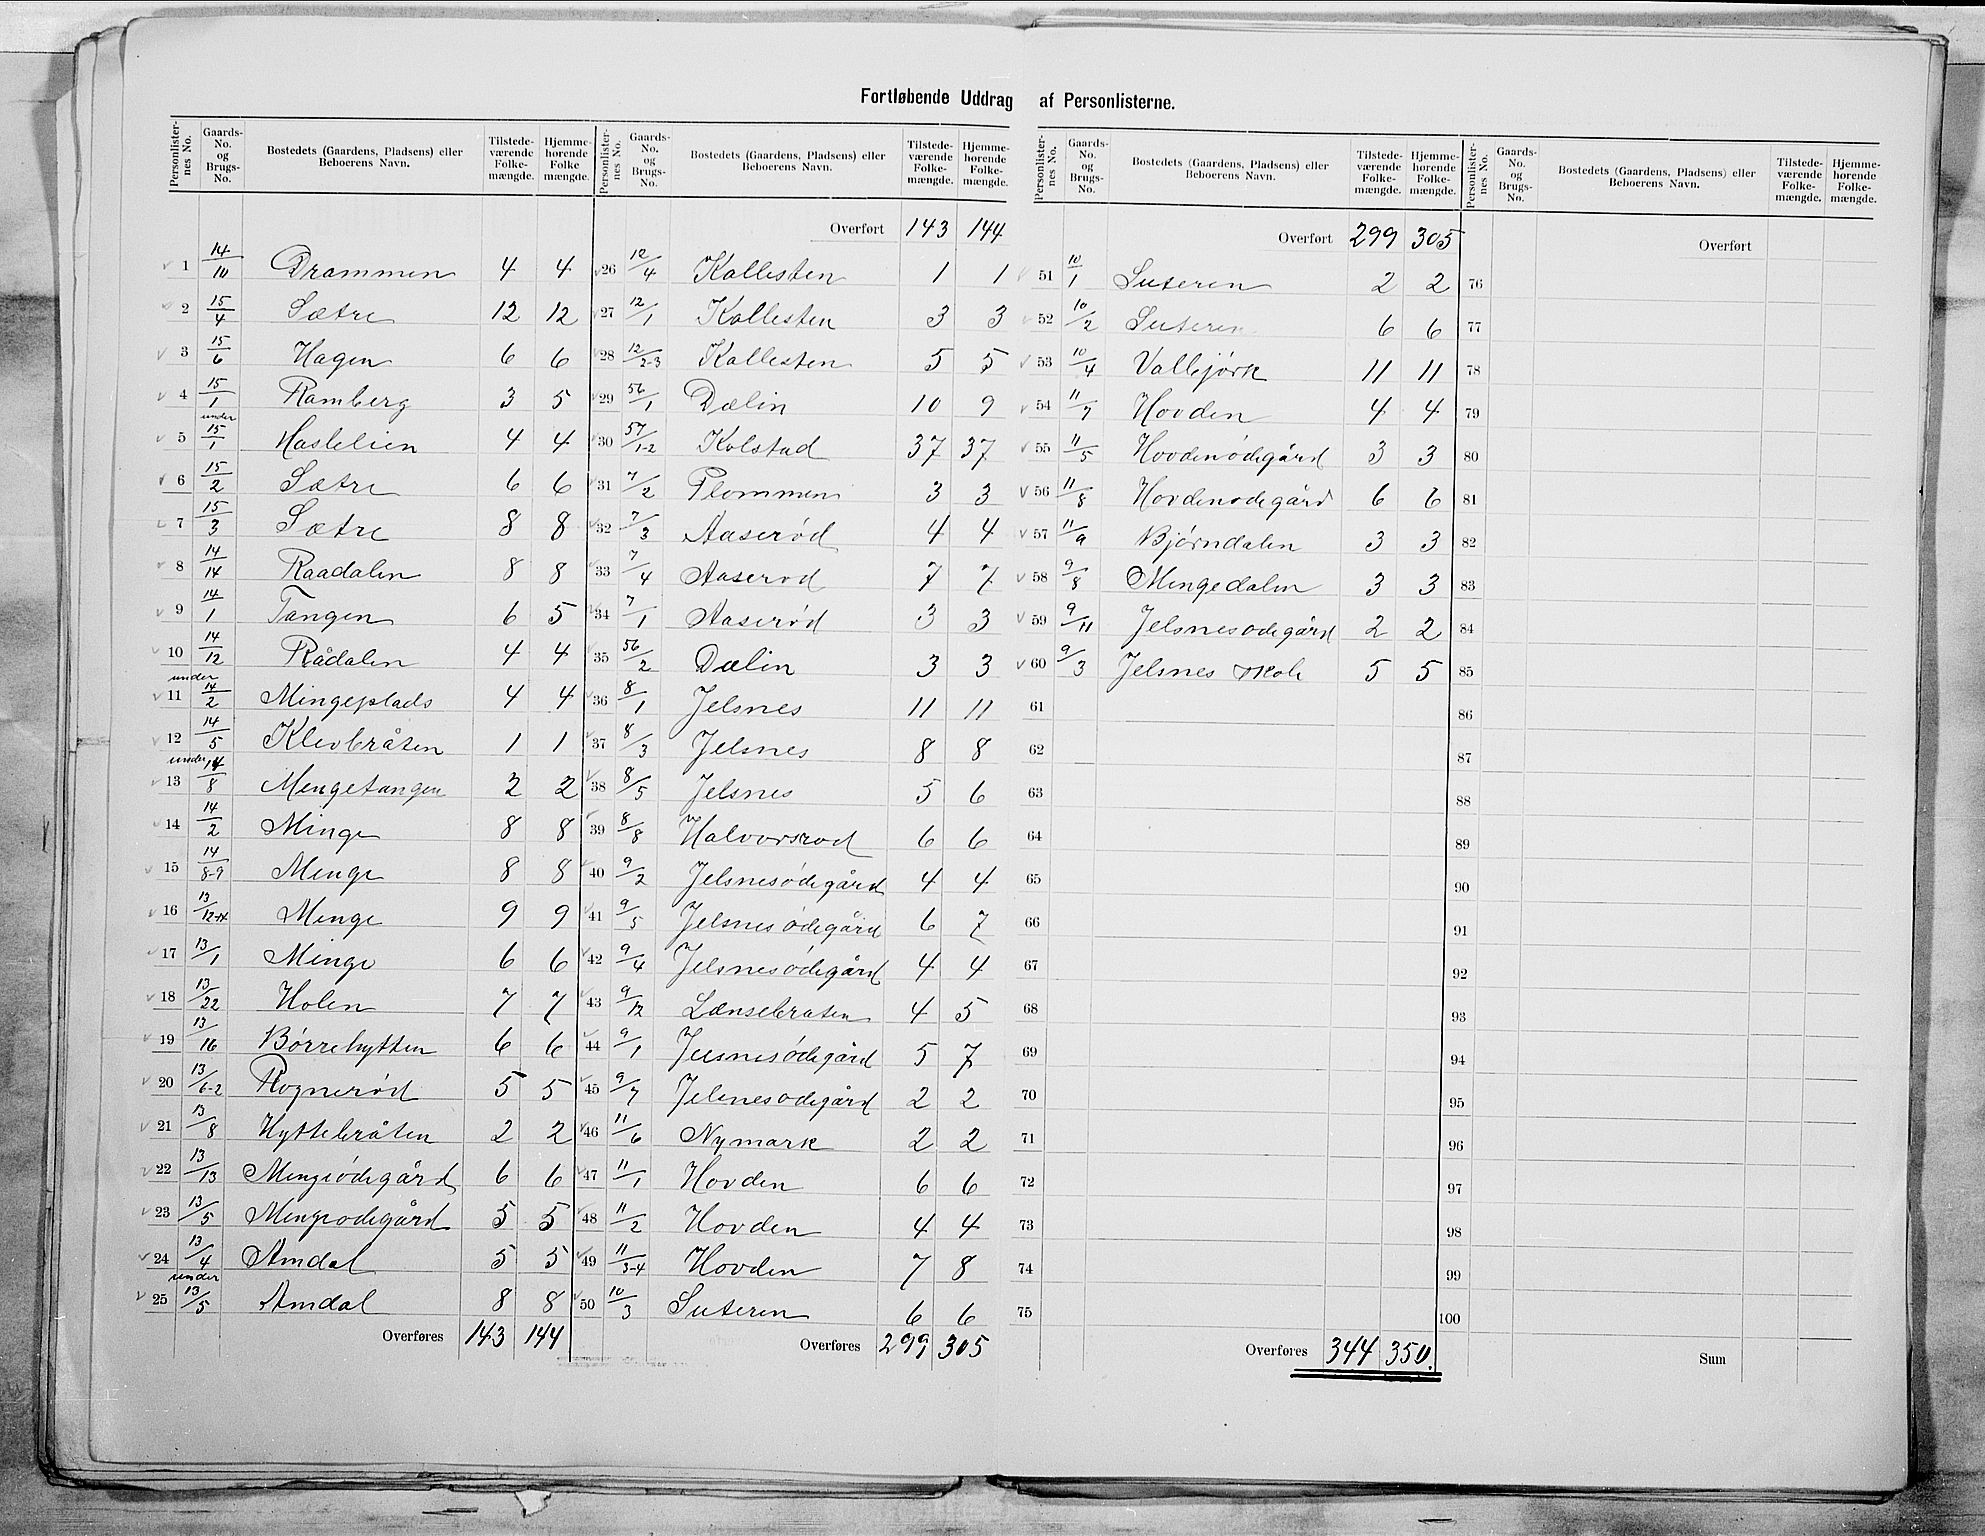 Fortløbende Uddrag af Personlisterne.
Personlisternes No. Gaards-No. og Brugs-No. Bostedets (Gaardens, Pladsens) eller Beboerens Navn. Tilstedeværende Folkemængde. Hjemmehørende Folkemængde.
1 14/10 Drammen 4 4
2 15/4 Sætre 12 12
3 15/6 Hagen 6 6
4 15/1 Ramberg 3 5
5 under 15/1 Haslelien 4 4
6 15/2 Sætre 6 6
7 15/3 Sætre 8 8
8 14/14 Raadalen 8 8
9 14/1 Tangen 6 5
10 14/12 Rådalen 4 4
11 under 14/2 Mingeplads 4 4
12 14/5 Klevbråten 1 1
13 under 14/8 Mengetangen 2 2
14 14/2 Minge 8 8
15 14/8-9 Menge 8 8
16 13/12-14 Menge 9 9
17 13/1 Minge 6 6
18 13/22 Holen 7 7
19 13/16 Børrehytten 6 6
20 13/6-2 Rognerød 5 5
21 13/8 Hyttebråten 2 2
22 13/13 Mengeødegård 6 6
23 13/5 Mengeodegård 5 5
24 13/4 Amdal 5 5
25 under 13/5 Amdal 8 8
Overføres 143 144
Personlisternes No. Gaards-No. og Brugs-No. Bostedets (Gaardens, Pladsens) eller Beboerens Navn. Tilstedeværende Folkemængde. Hjemmehørende Folkemængde.
Overført 143 144
26 12/4 Kallesten 1 1
27 12/1 Kallesten 3 3
28 12/2-3 Kallesten 5 5
29 56/1 Dælin 10 9
30 57/1-2 Kolstad 37 37
31 7/2 Plommen 3 3
32 7/3 Aaserød 4 4
33 7/4 Aaserod 7 7
34 7/1 Aaserød 3 3
35 56/2 Dælin 3 3
36 8/1 Jelsnes 11 11
37 8/3 Jelsnes 8 8
38 8/5 Jelsnes 5 6
39 8/8 Halvorsrod 6 6
40 9/2 Jelsnesødegård 4 4
41 9/5 Jelsnesødegård 6 7
42 9/4 Jelsnesødegård 4 4
43 9/12 Lænsebraten 4 5
44 9/1 Jelsnesødegård 5 7
45 9/7 Jelsnesodegård 2 2
46 11/6 Nymark 2 2
47 11/1 Hovden 6 6
48 11/2 Hovden 4 4
49 11/3-4 Hovden 7 8
50 10/3 Suteren 6 6
Overføres 299 305
Personlisternes No. Gaards-No. og Brugs-No. Bostedets (Gaardens, Pladsens) eller Beboerens Navn. Tilstedeværende Folkemængde. Hjemmehørende Folkemængde.
Overført 299 305
51 10/1 Suteren 2 2
52 10/2 Suteren 6 6
53 10/4 Vallbjørk 11 11
54 11/7 Hovden 4 4
55 11/5 Hovdenødegård 3 3
56 11/8 Hovdenodegård 6 6
57 11/9 Bjørndalen 3 3
58 9/8 Mingedalen 3 3
59 9/11 Jelsnesodegård 2 2
60 9/3 Jelsnes skole 5 5
61
62
63
64
65
66
67
68
69
70
71
72
73
74
75
Overføres 344 350.
Personlisternes No. Gaards-No. og Brugs-No. Bostedets (Gaardens, Pladsens) eller Beboerens Navn. Tilstedeværende Folkemængde. Hjemmehørende Folkemængde.
Overført
76
77
78
79
80
81
82
83
84
85
86
87
88
89
90
91
92
93
94
95
96
97
98
99
100
Sum